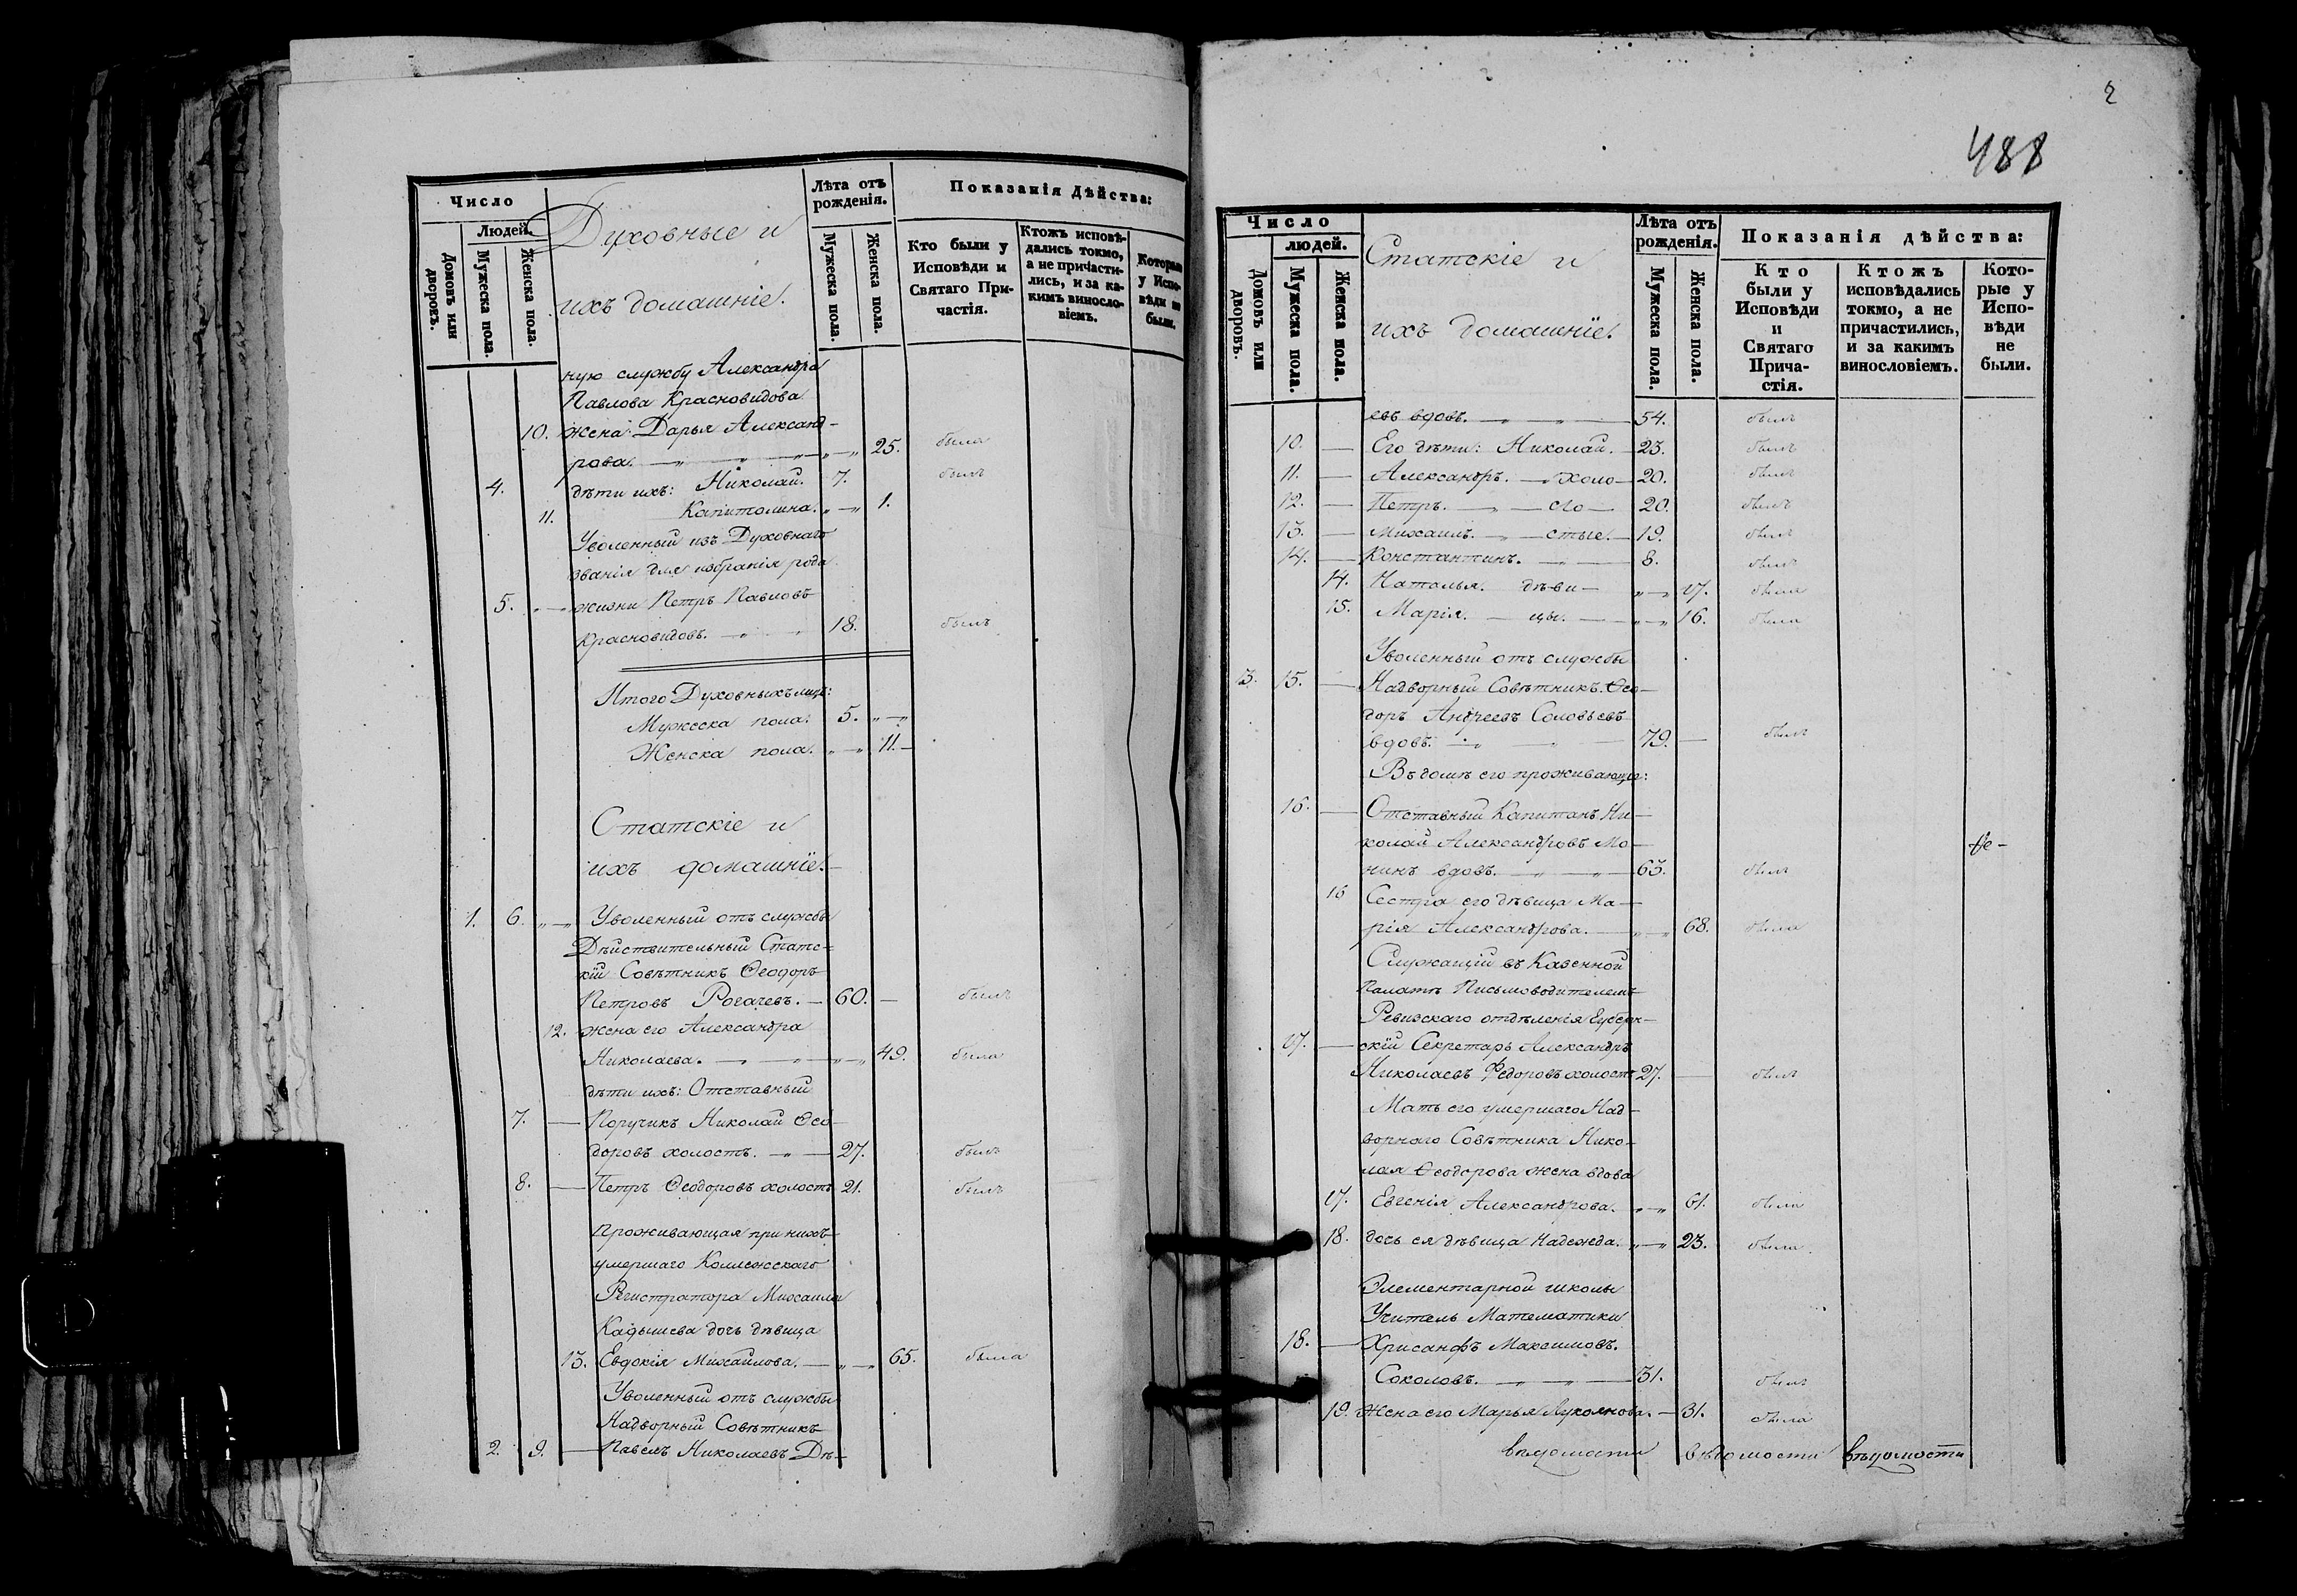 Число
Людей.
Домовъ или дворовъ.
Мужеска пола.
Женска пола.
Духовные и
ихъ домашніе.
Лѣта отъ рожденія.
Мужеска пола.
Женска пола.
Показанія Дѣйства:
Кто были у Исповѣди и Святаго Причастія.
Ктожъ исповѣ-
дались токмо,
а не причасти-
лись, и за ка-
кимъ винословіемъ.
Которые у Испо-
вѣди не были.
ную службу Александра
Павлова Красновидова
10. жена: Дарья Александ-
рова. 25. была
4. дѣти ихъ: Николай. 7. былъ
11. Капитолина. 1.
Уволенный изъ Духовнаго
званія для избранія рода
5. жизни Петръ Павловъ
Красновидовъ. 18. былъ
Итого Духовныхъ лицъ:
Мужеска пола. 5.
Женска пола. 11.
Статскіе и
ихъ домашніе.
1. 6. Уволенный отъ службы
Дѣйствительный Статс-
кій Совѣтникъ Ѳеодоръ
Петровъ Рогачевъ. 60. былъ
12. жена его Александра
Николаева. 49. была
дѣти ихъ: Отставный
7. Поручикъ Николай Ѳео-
доровъ холостъ. 27. былъ
8. Петръ Ѳеодоровъ холостъ 21. былъ
Проживающая при нихъ
умершаго Коллежскаго
Регистратора Михаила
дочь дѣвица
13. Евдокія Михайлова. 65. была
Уволенный отъ службы
Надворный Совѣтникъ
2. 9. Павелъ Николаевъ Дѣ-
2
488
Число
людей.
Домовъ или дворовъ.
Мужеска пола.
Женска пола.
Статскіе и
ихъ домашніе.
Лѣта отъ рожденія.
Мужеска пола.
Женска пола.
Показанія дѣйства:
Кто были у Исповѣди и Святаго Прича-
стія.
Ктожъ исповѣдались токмо, а не причастились, и за какимъ винословіемъ.
Кото-
рые у Испо-
вѣди не были.
евъ вдовъ. 54. былъ
10. Его дѣти: Николай. 23. былъ
11. Александръ. холо- 20. былъ
12. Петръ. 20. былъ
13. Михаилъ. стые. 19. былъ
14. Константинъ. 8. былъ
14. Наталья. дѣви- 17. была
15. Марія. цы. 16. была
Уволенный отъ службы
3. 15. Надворный Совѣтникъ Ѳео-
доръ Андреевъ Соловьевъ
вдовъ. 79. былъ
Въ домѣ его проживающіе:
16. Отставный Капитанъ Ни-
колай Александровъ Мо-
нинъ вдовъ. 63. былъ
16 Сестра его дѣвица Ма-
рія Александрова. 68. была
Служащій въ Казенной
Палатѣ Письмоводителемъ
Ревизскаго отдѣленія Губерн-
17. скій Секретарь Александръ
Николаевъ Ѳедоровъ холостъ 27. былъ
Мать его умершаго Над-
ворнаго Совѣтника Нико-
лая Ѳеодорова жена вдова
17. Евгенія Александрова. 61. была
18. дочь ея дѣвица Надежда. 23. была.
Элементарной школы
Учитель Математики
18. Хрисанфъ Максимовъ.
Соколовъ. 31. былъ
19. Жена его Марья Лукоянова. 31. была
вѣдомости вѣдомости вѣдомости